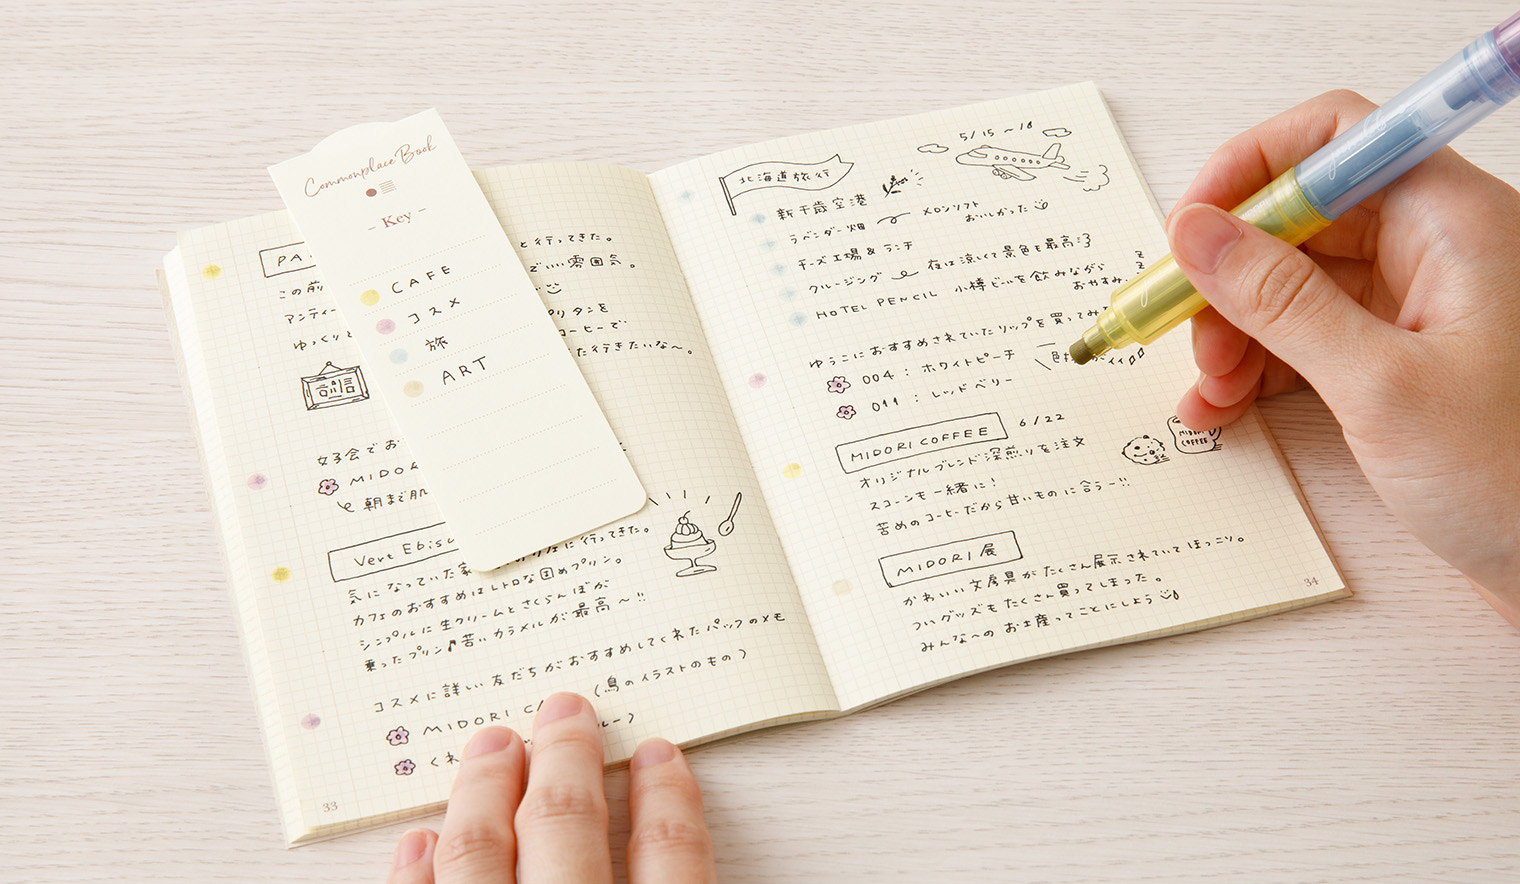 Commonplace Book
- Key -
CAFE
コスメ
旅
ART
PA
と行ってきた。
この前
でいい雰囲気。
アンティー
ゆっくりと
プリタンを
コーヒーで
た行きたいな〜。
女子会でお
MIDOR
朝まで肌
Vert Ebisu
に行ってきた。
気になっていた家
カフェのおすすめはレトロな固めプリン。
シンプルに生クリームとさくらんぼが
乗ったプリン♪苦いカラメルが最高〜!!
コスメに詳しい友だちがおすすめしてくれたパックのメモ
MIDORI C
(鳥のイラストのもの)
くれ
ルー)
33
5/15 〜 18
北海道旅行
新千歳空港
ラベンダー畑
メロンソフト
おいしかった
チーズ工場 & ランチ
クルージング
夜は涼しくて景色も最高
HOTEL PENCIL 小樽ビールを飲みながら
おやすみ
z z z
ゆうこにおすすめされていたリップを買ってみ
004 : ホワイトピーチ
011 : レッドベリー
MIDORI COFFEE
6/22
オリジナルブレンド深煎りを注文
スコーンも一緒に!
苦めのコーヒーだから甘いものに合うー!!
MIDORI COFFEE
MIDORI 展
かわいい文房具がたくさん展示されていてほっこり。
ついグッズもたくさん買ってしまった。
みんなへのお土産ってことにしよう
34